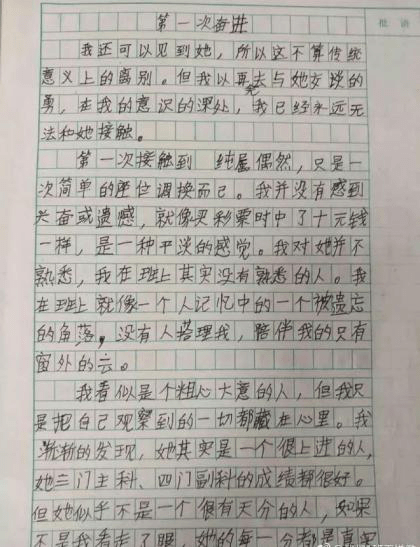 批语
第一次奋进
我还可以见到她，所以这不算传统
意义上的离别。但我以再去与她交谈的
勇，在我的意识的深处，我已经永远无
法和她接触。
第一次接触到 纯属偶然，只是一
次简单的座位调换而已。我并没有感到
兴奋或遗憾，就像买彩票时中了十元钱
一样，是一种平淡的感觉。我对她并不
熟悉，我在班上其实没有熟悉的人。我
在班上就像一个人记忆中的一个被遗忘
的角落，没有人搭理我，陪伴我的只有
窗外的云。
我看似是个粗心大意的人，但我只
是把自己观察到的一切都藏在心里。我
渐渐的发现，她其实是一个很上进的人，
她三门主科、四门副科的成绩都很好。
但她似乎不是一个很有天分的人，如果
不是我看走了眼，她的每一分都是真实